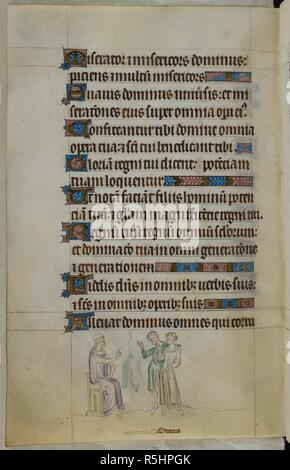 Miserator et misericors dominus:
paciens et multum misericors
Suavis dominus univsis: et mi
seratones eius super omnia opa ei9
Confiteantur tibi domine omnia
opera tua: et sci tui benedicant tibi
Gloriam regni tui dicent: potenciam
tuam loquentur
Ut notam faciāt filiis hominū poten
ciam tuā: et gliam magnificēcie regni tui
Regnū tuum regnū omniū sclorum:
et dominaco tua in omni generatone
et generationem
Fidelis dūs in omnibz verbis suis:
et scs in omnibz opibz suis
Allevat dominus omnes qui corru
alamy
R5HPGK
www.alamy.com